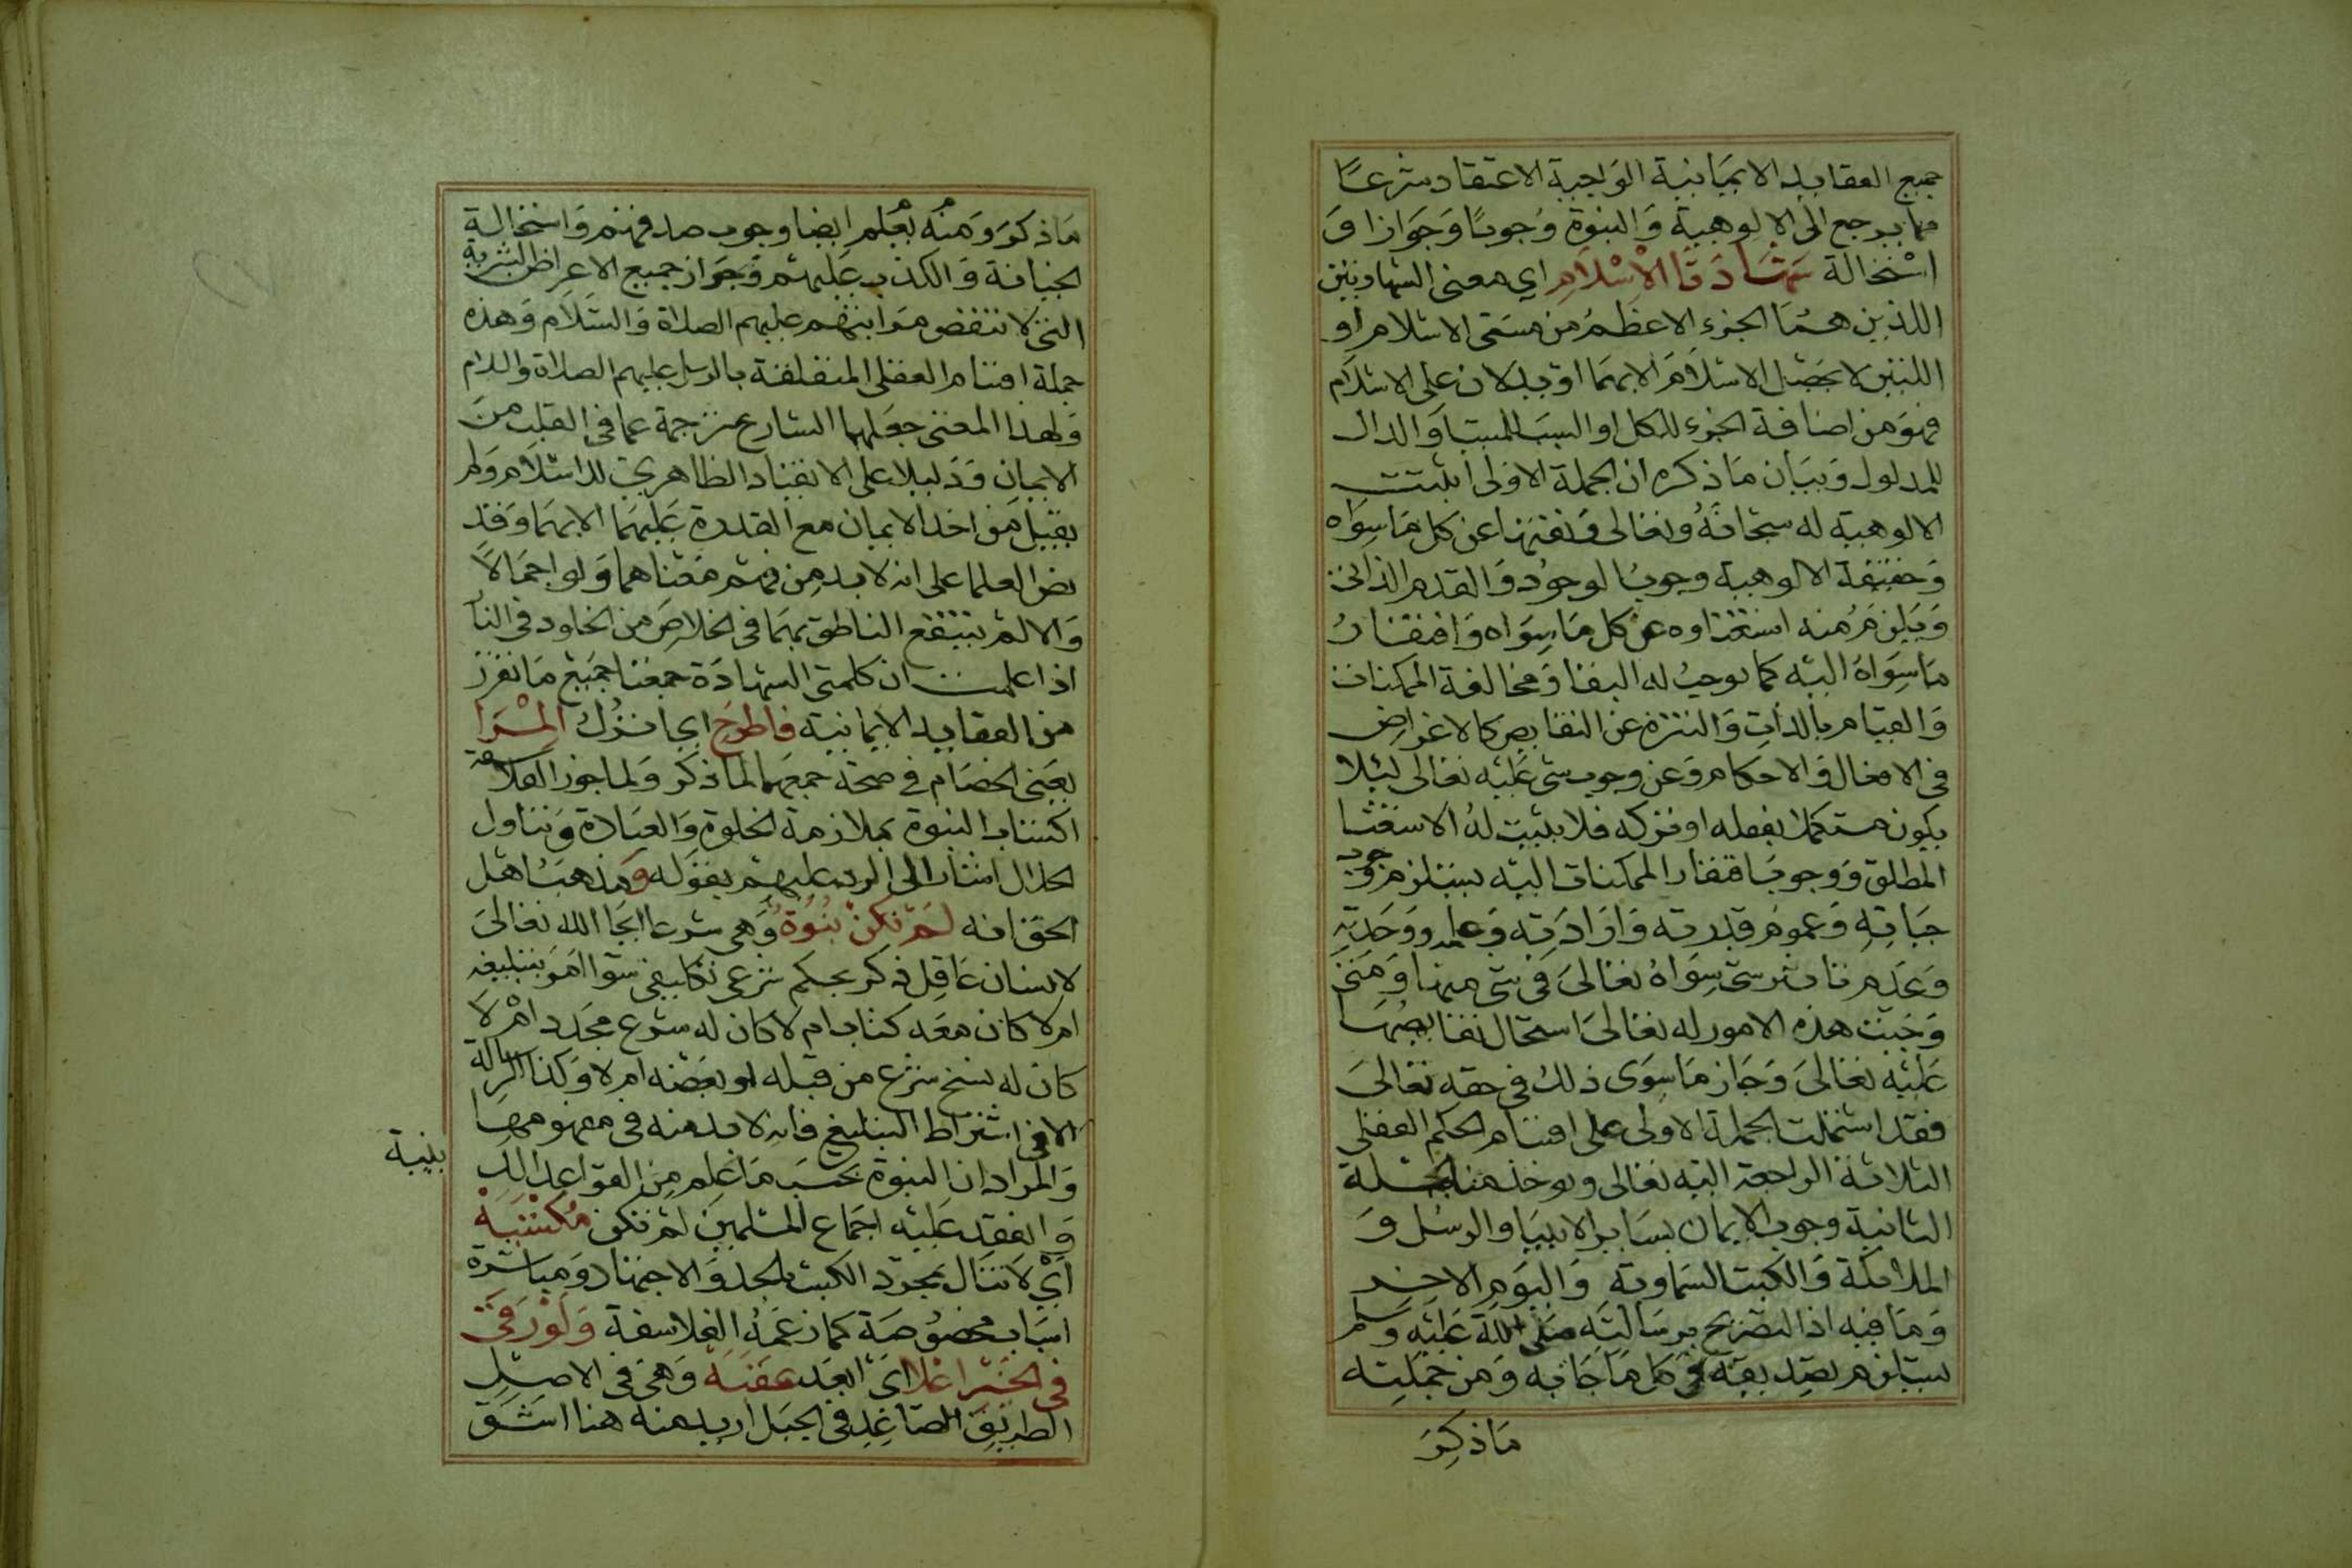 جميع العقايد الايمانية الواجبة الاعتقاد شرعًا
مما يرجع الى الالوهية والنبوة وُجوبًا وَجَوَازا وَ
اسْتحالة شَهَادَتَا الْاِسْلَامِ اي معنى الشهادتين
اللذين هُمَا الجزء الاعظمُ من مسَمى الاسلام او
اللتين لا يحصْل الاسلَام الا بهمَا او يدلان على الاسلام
فهوَ من اضافة الجزء للكل او السبَب للمسبب وَالدال
للمدلول وَبيَان مَا ذكره ان الجملة الاولى اثبتت
الالوهية له سبحانهُ وتعالى وَنفتهَا عن كل مَا سِوَاه
وَحقيقة الالوهية وجوبُ الوجوُد وَالقدم الذاتى
وَيَلزمُ منه استغناوه عن كل مَا سِوَاه وَافتقارُ
مَا سِوَاهُ اليْه كما يوجبُ له البقا وَمخالفة الممكنات
وَالقيام بالذاتِ وَالتنزه عن النقايص كالاغراض
فى الافعال وَالاحكام وَعن وجوب شى عَليْه تعالى ليلا
يكون مستكملا بفعله او تركه فلا يثبت لهُ الاستغنا
المطلق وَوجوبُ افتقار الممكنات اليْه يستلزم وجود
حيَاتِهِ وَعموم قدرته وَارَادَتِه وَعلمه ووَحَدتِه
وَعَدم تاثير شى سِوَاهُ تعالىَ فى شى منها وَمَتى
وَجَبت هذه الامور له تعالىَ استحال نقايصُهَا
عَليْه تعَالىَ وَجَاز مَا سِوَى ذلك فى حقه تعَالىَ
فقد اشتملت الجملة الاولى على اقسام الحكم العقلي
الثلاثة الراجعة اليه تعالى ويوخذ من الجملة
الثانية وجوب الايمان بسَاير الانبيَا والرسُل وَ
الملائكة وَالكتب السماوية وَاليَوم الاخر
وَمَا فيه اذ التصريح برسَالتِه صَلى الله عَليْه وَسلم
يستلزم تصديقه فى كل مَا جَا به وَمن جمْلتِه
مَا ذكِرَ
مَا ذكرَ وَمنهُ يُعْلم ايضا وجوب صدقهم وَاستحالة
الخيانة وَالكذب عَليهمْ وَجَواز جميع الاعراض البشرية
التى لا تنقض مَراتبهم عليهم الصلاة وَالسَّلام وَهذه
جملة اقسام العقلى المتعلقة بالرسل عليهم الصلاة والسلام
وَلهذا المعنى جعَلهما الشارع ترجمة عما فى القلب من
الايمان وَدَليلا على الانقياد الظاهري للاسلام وَلم
يقبل من احد الايمان مع القدرة عَليهمَا الا بهمَا وَقد
نص العلما على انه لا بد من فهْم مَعْناهما وَلو اجمَالًا
وَالا لمْ ينتفع الناطق بهمَا فى الخلاصِ من الخلود فى النار
اذا علمت ان كلمتى الشهادَة جمعتا جَميْع مَا تقرر
من العقايد الايمانية فاطرحِ اى اترُك الْمِـرَا
يعَنى الخصَام فى صحة جمعهمَا لما ذكر وَلما جوز الفلاسفة
اكتسَاب النبوة بملازمة الخلوة وَالعبَادة وَتناول
الحلال اشار الى الرد عليهمْ بقوَله وَمذهبُ اهْل
الحق انه لَمْ تكُنْ نُبُوَّةٌ وَهي شرعا ايحَا الله تعَالىَ
لانسان عَاقِل ذكر بحكم شرعي تكليفى سوَا امَرَ بتبليغه
ام لا كان معَه كتاب ام لا كان له شرع مجَدد امْ لا
كان له نسخ شرع من قبْله او بعَضه ام لا وَكذا الرسالة
الا فى اشتراط التبليغ فانه لا بد منه فى مفهومهَا
وَالمراد ان النبوة بحسَب مَا عُلِم من القوَاعِد الد
ينية
وَانعقد عَليْه اجمَاع المسْلمين لمْ تكن مُكْتسَبَهْ
أَيْ لَا تنال بمجرد الكسب بالجد وَالاجتهاد وَمباشرة
اسبَاب مخصُوصَة كما زعَمَهُ الفلاسفة وَلَوْ رَقَى
فى الخَيْر اعْلا اىْ ابعَد عقَبَهْ وَهَى فى الاصْل
الطريق الصَاعِد فى الجبل اريد منه هنا اشَق